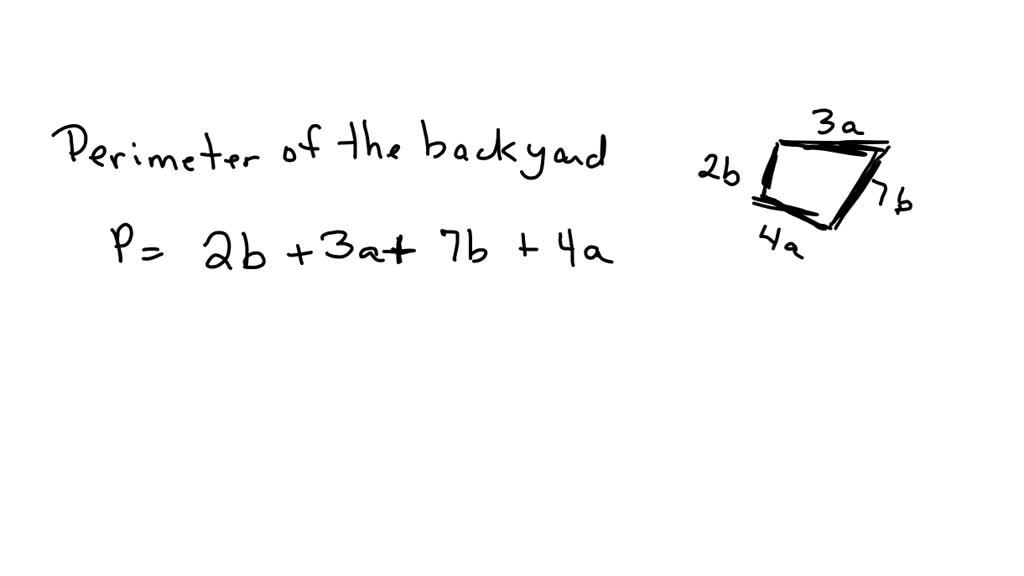 Perimeter of the backyard
P = 2b + 3a + 7b + 4a
3a
2b
7b
4a